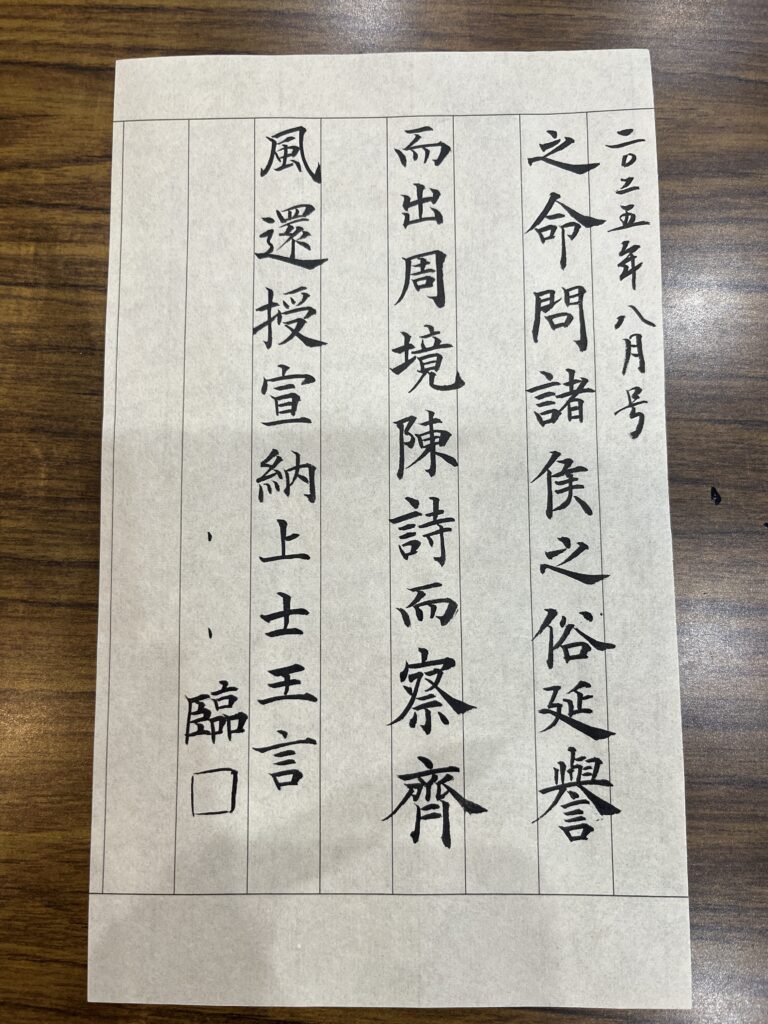 二〇二五年八月号
之命問諸侯之俗延譽
而出周境陳詩而察齊
風還授宣納上士王言
、、臨□